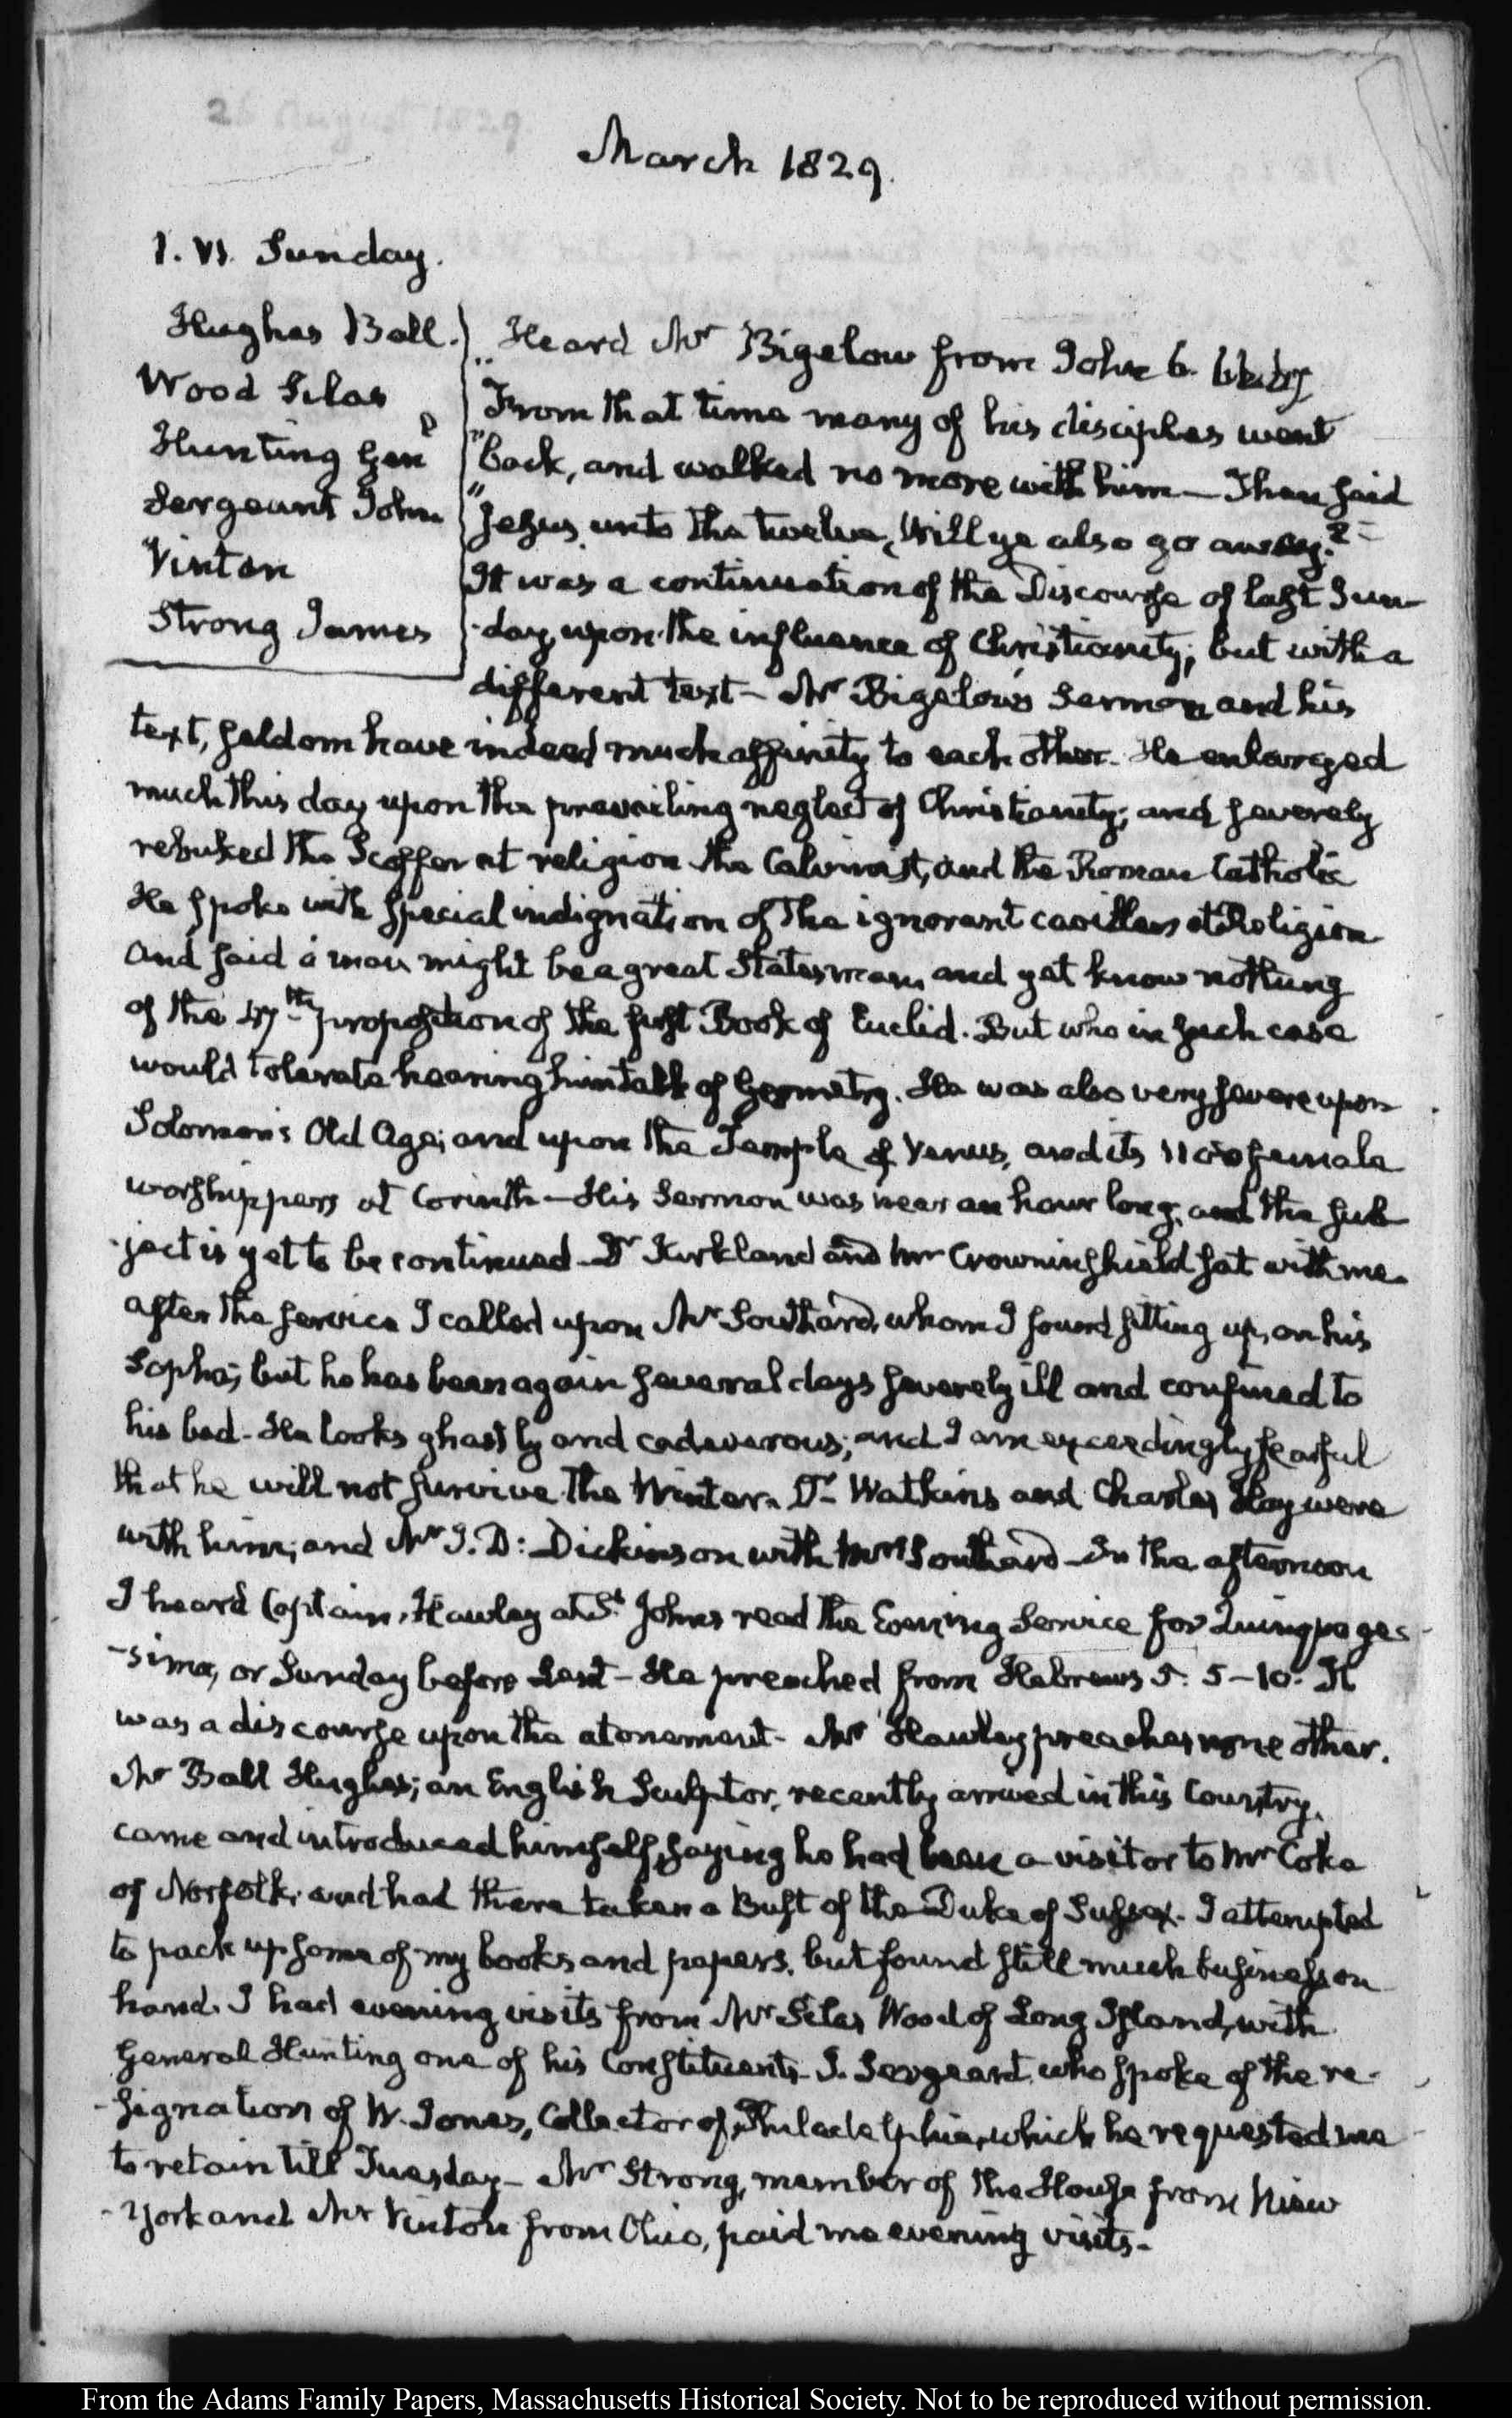 March 1829.
1. VI. Sunday.
Hughes Ball.
Wood Silas
Hunting Genl
Sergeant John
Vinton
Strong James
Heard Mr Bigelow from John 6.
"From that time many of his disciples went
"back, and walked no more with him — Then said
"Jesus unto the twelve, Will ye also go away?"
It was a continuation of the Discourse of last Sun-
-day, upon the influence of Christianity; but with a
different text — Mr Bigelow's Sermon and his
text, seldom have indeed much affinity to each other. He enlarged
much this day upon the prevailing neglect of Christianity; and severely
rebuked the Scoffer at religion the Calvinist, and the Roman Catholic
He spoke with special indignation of the ignorant cavillers at Religion
and said a man might be a great Statesman, and yet know nothing
of the 47th proposition of the first Book of Euclid. But who in such case
would tolerate hearing him talk of Geometry. He was also very severe upon
Solomon's Old Age; and upon the Temple of Venus, and its female
worshippers at Corinth — His Sermon was near an hour long, and the sub
-ject is yet to be continued — Dr Kirkland and Mr Crowninshield sat with me.
after the service I called upon Mr Southard, whom I found sitting up, on his
Sopha; but he has been again several days severely ill and confined to
his bed — He looks ghastly and cadaverous; and I am exceedingly fearful
that he will not survive the Winter. Dr Watkins and Charles Hay were
with him; and Mr J. D: Dickinson with Mrs Southard — In the afternoon
I heard Captain Hawley at St Johns read the Evening Service for Quinquages-
-sima, or Sunday before Lent — He preached from Hebrews 5. 5–10. It
was a discourse upon the atonement — Mr Hawley preaches none other.
Mr Ball Hughes; an English Sculptor, recently arrived in this Country,
came and introduced himself, saying he had been a visitor to Mr Coke
of Norfolk, and had there taken a Bust of the Duke of Sussex. I attempted
to pack up some of my books and papers, but found still much business on
hand. I had evening visits from Mr Silas Wood of Long Island, with
General Hunting one of his Constituents — J. Sergeant, who spoke of the re-
-signation of W. Jones, Collector of Philadelphia, which he requested me
to retain till Tuesday — Mr Strong, member of the House from New
-York and Mr Vinton from Ohio, paid me evening visits.
From the Adams Family Papers, Massachusetts Historical Society. Not to be reproduced without permission.